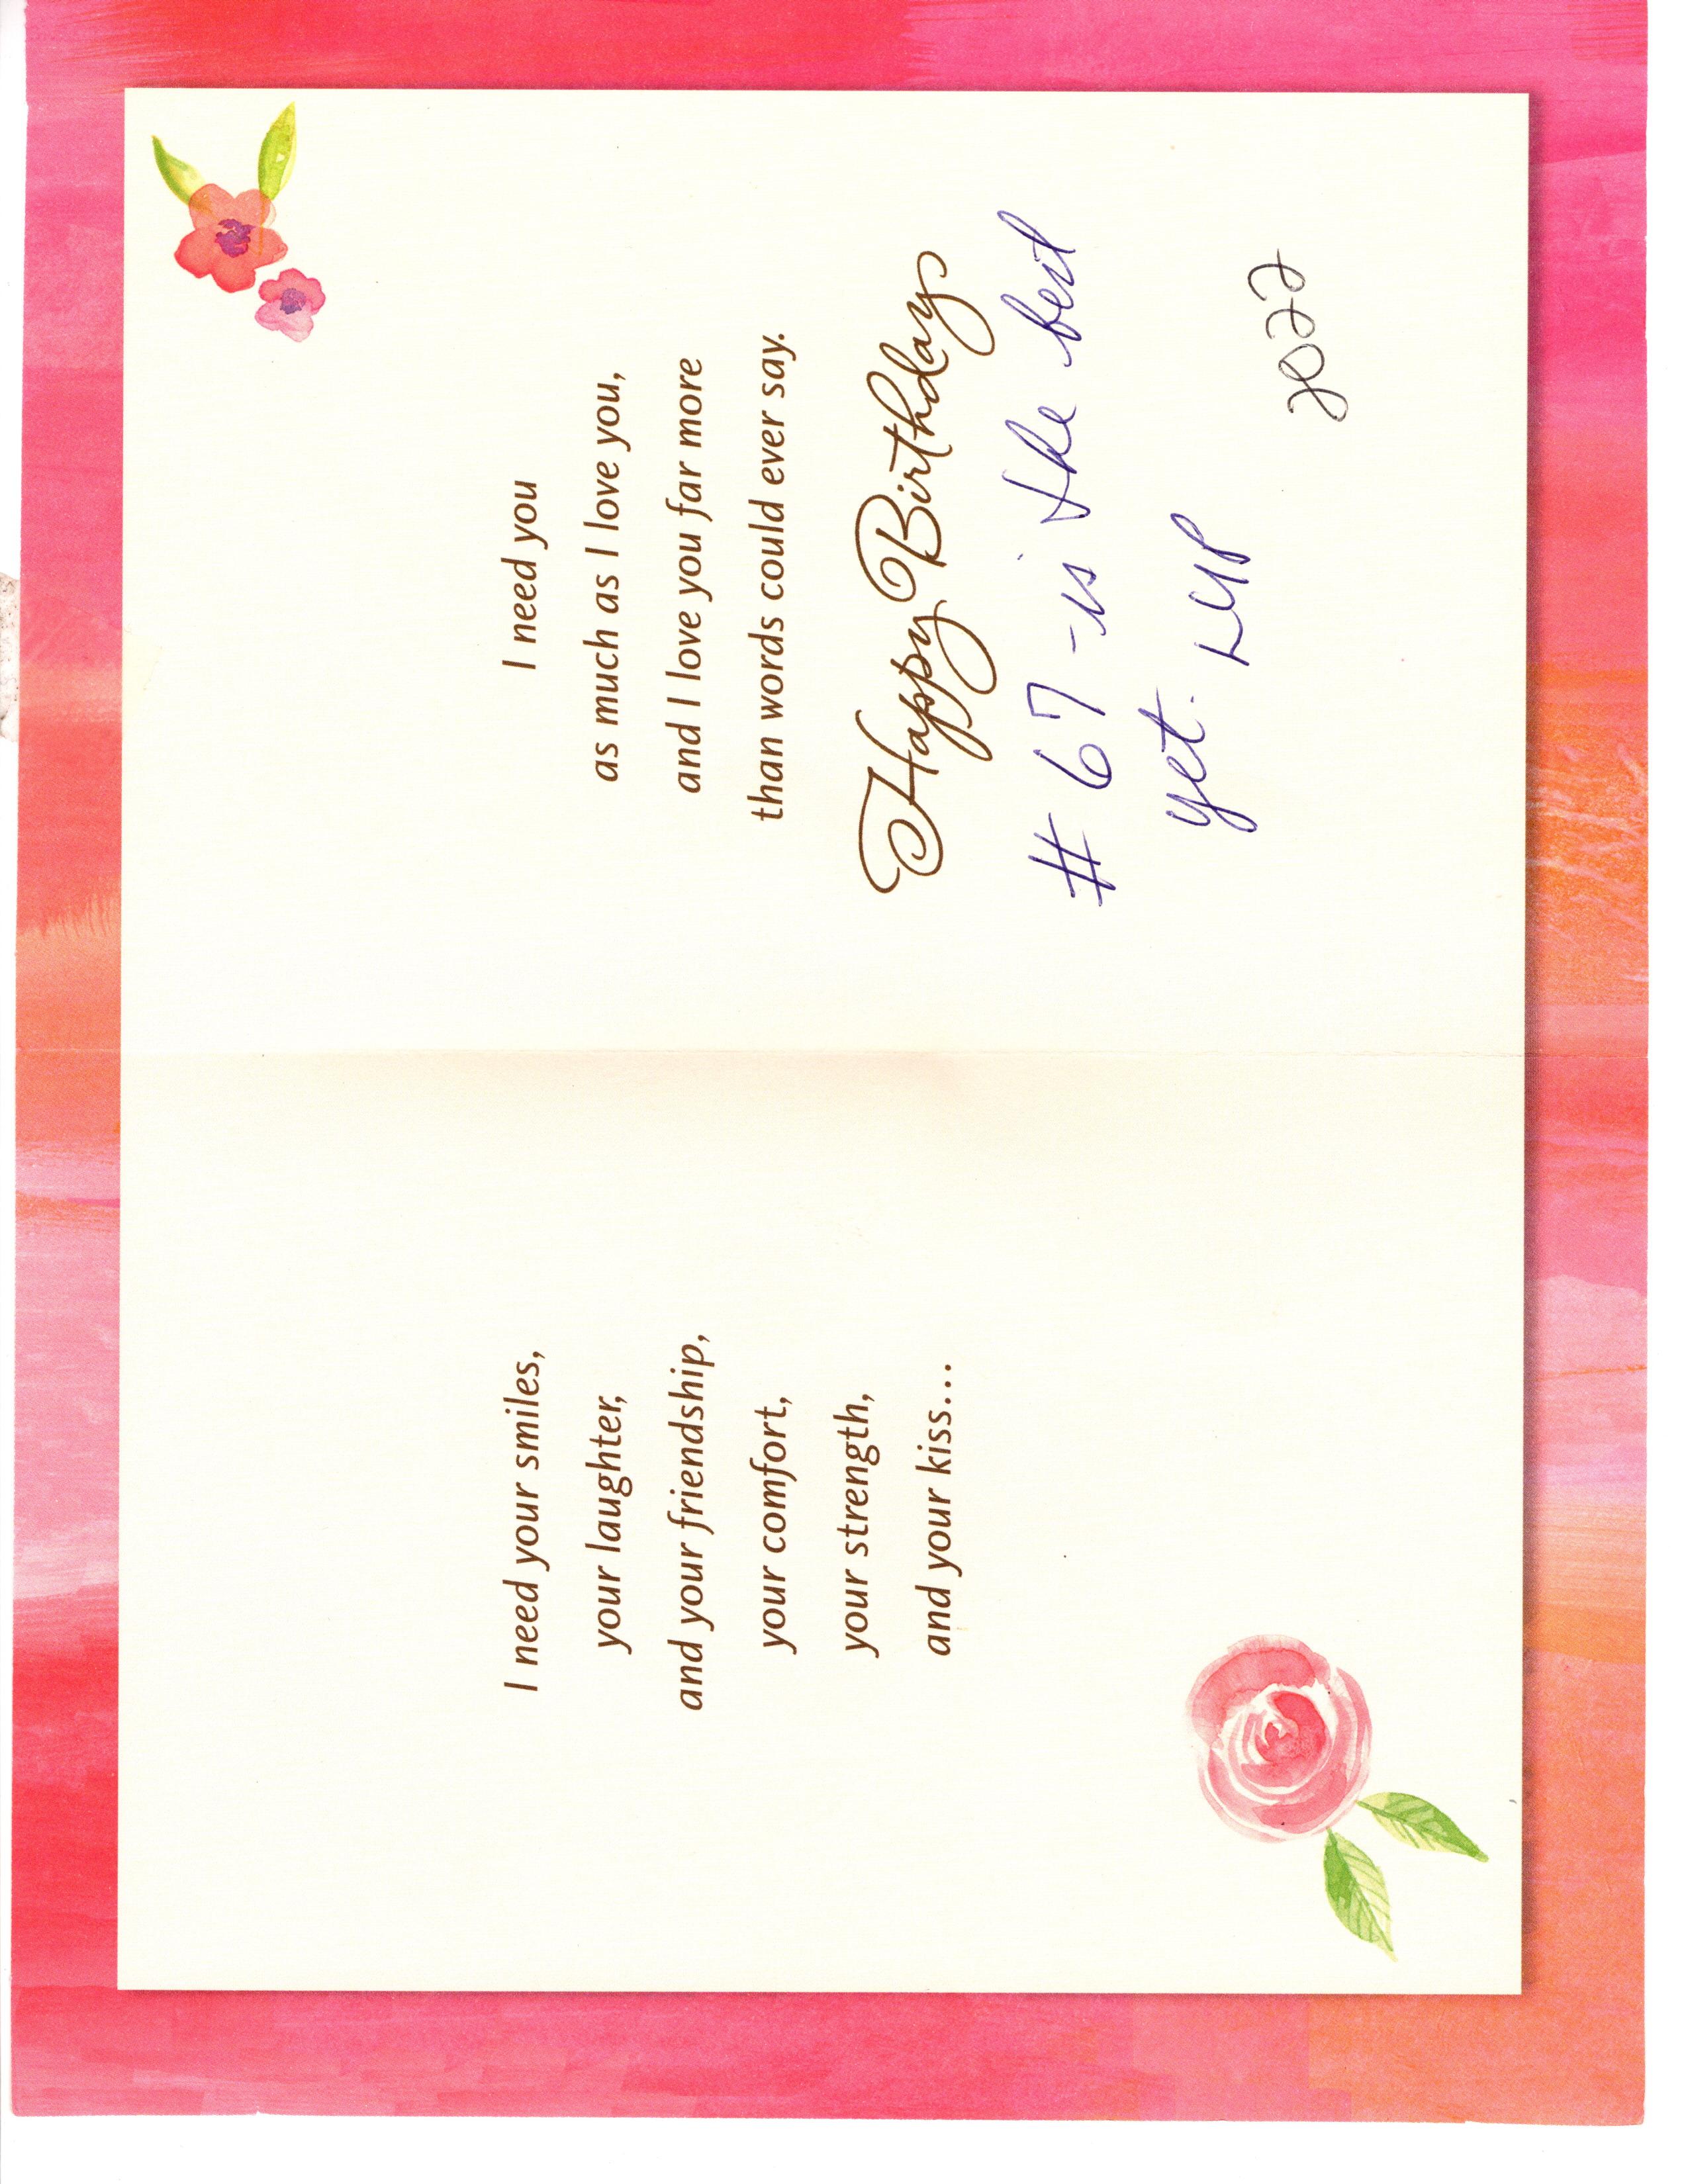 I need your smiles,
your laughter,
and your friendship,
your comfort,
your strength,
and your kiss...
I need you
as much as I love you,
and I love you far more
than words could ever say.
Happy Birthday
# 67 - is the best
yet.
2022